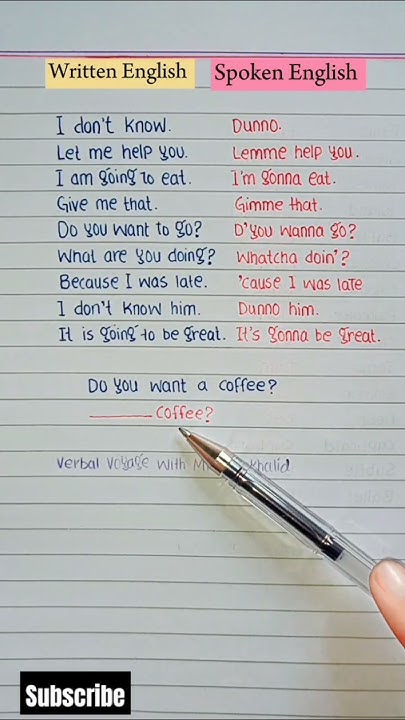 Written English Spoken English
I don't know. Dunno.
Let me help you. Lemme help you.
I am going to eat. I'm gonna eat.
Give me that. Gimme that.
Do you want to go? D'you wanna go?
What are you doing? Whatcha doin'?
Because I was late. 'cause I was late
I don't know him. Dunno him.
It is going to be great. It's gonna be great.
Do you want a coffee?
______ coffee?
Verbal Voyage with Khalid
Subscribe